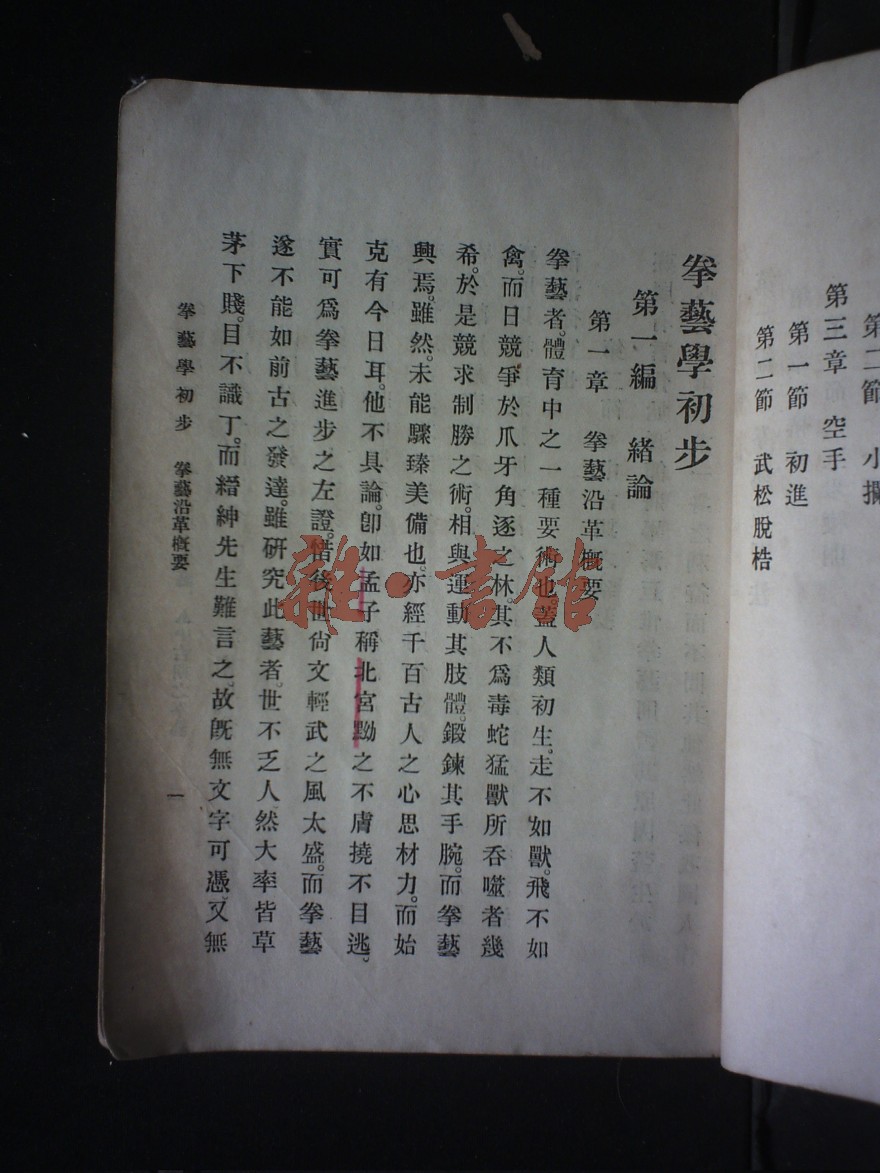 第二節 小攔
第三章 空手
第一節 初進
第二節 武松脫梏
拳藝學初步
第一編 緒論
第一章 拳藝沿革概要
拳藝者。體育中之一種要術也蓋人類初生。走不如獸。飛不如
禽。而日競爭於爪牙角逐之林。其不爲毒蛇猛獸所吞噬者幾
希。於是競求制勝之術。相與運動其肢體。鍛鍊其手腕。而拳藝
興焉。雖然。未能驟臻美備也。亦經千百古人之心思材力。而始
克有今日耳。他不具論。卽如孟子稱北宮黝之不膚撓不目逃。
實可爲拳藝進步之左證。惜後世尙文輕武之風太盛。而拳藝
遂不能如前古之發達。雖研究此藝者。世不乏人然大率皆草
茅下賤。目不識丁。而縉紳先生難言之。故旣無文字可憑。又無
拳藝學初步 拳藝沿革概要
一
雜·書館